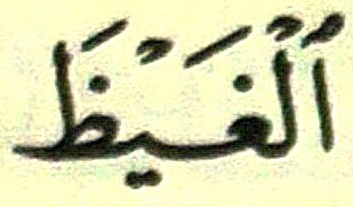 ٱلْغَيْظَ